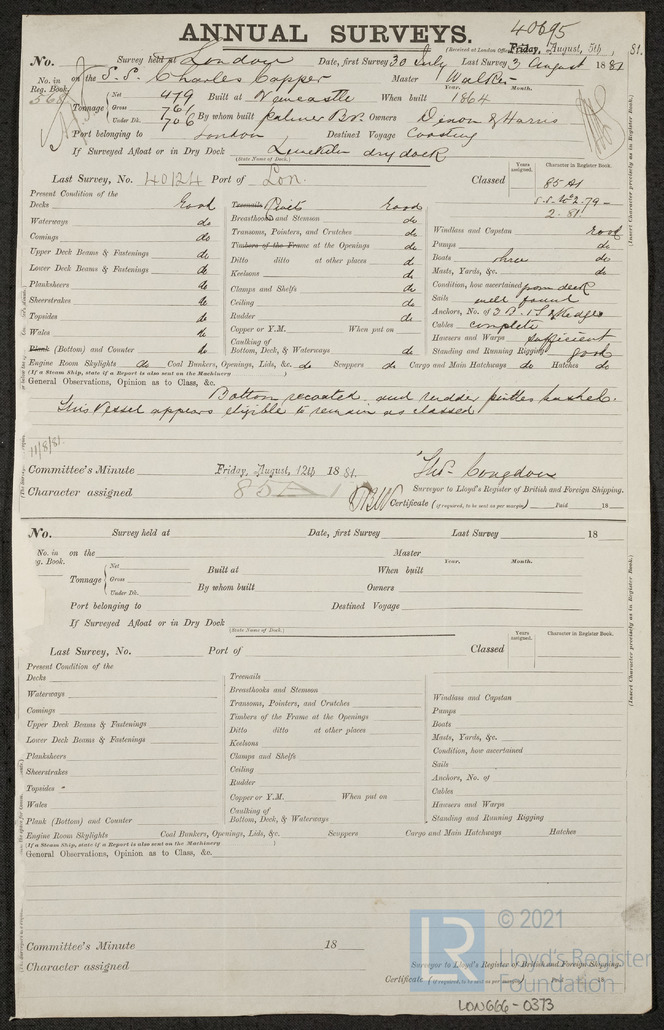 40695
ANNUAL SURVEYS.
(Received at London Office Friday, August, 5th, 81.
No. Survey held at London Date, first Survey 30 July Last Survey 3 August 1881
No. in Reg. Book. on the S.S. Charles Capper Master Walker
Year. Month.
Tonnage Net 479 Built at Newcastle When built 1864
Gross 761
Under Dk. 706 By whom built Palmer Brs Owners Dixon & Harris
Port belonging to London Destined Voyage Coasting
If Surveyed Afloat or in Dry Dock Limekiln dry dock
(State Name of Dock.)
Last Survey, No. 40124 Port of Lon. Classed
Years assigned. Character in Register Book.
85 A1
S.S. No 2. 79 -
2. 81
(Insert Character precisely as in Register Book.)
Present Condition of the
Decks Good
Waterways do
Comings do
Upper Deck Beams & Fastenings do
Lower Deck Beams & Fastenings do
Planksheers do
Sheerstrakes do
Topsides do
Wales do
Plank (Bottom) and Counter do
Treenails Rivets Good
Breasthooks and Stemson do
Transoms, Pointers, and Crutches do
Timbers of the Frame at the Openings do
Ditto ditto at other places do
Keelsons do
Clamps and Shelfs do
Ceiling do
Rudder do
Copper or Y.M. When put on
Caulking of
Bottom, Deck, & Waterways do
Windlass and Capstan Good
Pumps do
Boats three do
Masts, Yards, &c. do
Condition, how ascertained from deck
Sails well found
Anchors, No. of 3 B. 1 S & Kedges
Cables complete
Hawsers and Warps sufficient
Standing and Running Rigging good
Engine Room Skylights do Coal Bunkers, Openings, Lids, &c. do Scuppers do Cargo and Main Hatchways do Hatches do
(If a Steam Ship, state if a Report is also sent on the Machinery )
General Observations, Opinion as to Class, &c.
Bottom recoated and rudder pintles bushed.
This Vessel appears eligible to remain as classed
11/8/81.
Committee's Minute Friday, August, 12th 1881.
Thos. Congdon
Surveyor to Lloyd's Register of British and Foreign Shipping.
Character assigned 85 A 1
Certificate (if required, to be sent as per margin) Paid 18
No. Survey held at Date, first Survey Last Survey 18
No. in on the Master
eg. Book.
Year. Month.
Tonnage Net Built at When built
Gross
Under Dk. By whom built Owners
Port belonging to Destined Voyage
If Surveyed Afloat or in Dry Dock
(State Name of Dock.)
Last Survey, No. Port of Classed
Years assigned. Character in Register Book.
(Insert Character precisely as in Register Book.)
Present Condition of the
Decks
Waterways
Comings
Upper Deck Beams & Fastenings
Lower Deck Beams & Fastenings
Planksheers
Sheerstrakes
Topsides
Wales
Plank (Bottom) and Counter
Treenails
Breasthooks and Stemson
Transoms, Pointers, and Crutches
Timbers of the Frame at the Openings
Ditto ditto at other places
Keelsons
Clamps and Shelfs
Ceiling
Rudder
Copper or Y.M. When put on
Caulking of
Bottom, Deck, & Waterways
Windlass and Capstan
Pumps
Boats
Masts, Yards, &c.
Condition, how ascertained
Sails
Anchors, No. of
Cables
Hawsers and Warps
Standing and Running Rigging
Engine Room Skylights Coal Bunkers, Openings, Lids, &c. Scuppers Cargo and Main Hatchways Hatches
(If a Steam Ship, state if a Report is also sent on the Machinery )
General Observations, Opinion as to Class, &c.
Committee's Minute 18
Character assigned
Surveyor to Lloyd's Register of British and Foreign Shipping.
Certificate (if required, to be sent as per margin)
LR © 2021
Lloyd's Register
Foundation
LON666-0373